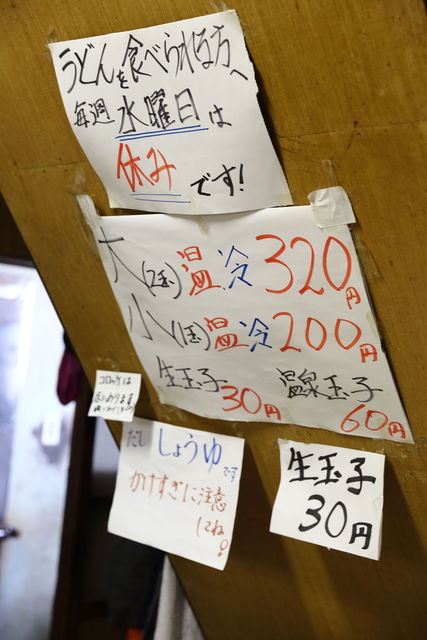 うどんを食べられる方へ
毎週 水曜日は
休みです!
大(2玉)温冷320円
小(1玉)温冷200円
生玉子30円 温泉玉子60円
コロッケは
だし しょうゆです
かけすぎに注意
してね!
生玉子
30円